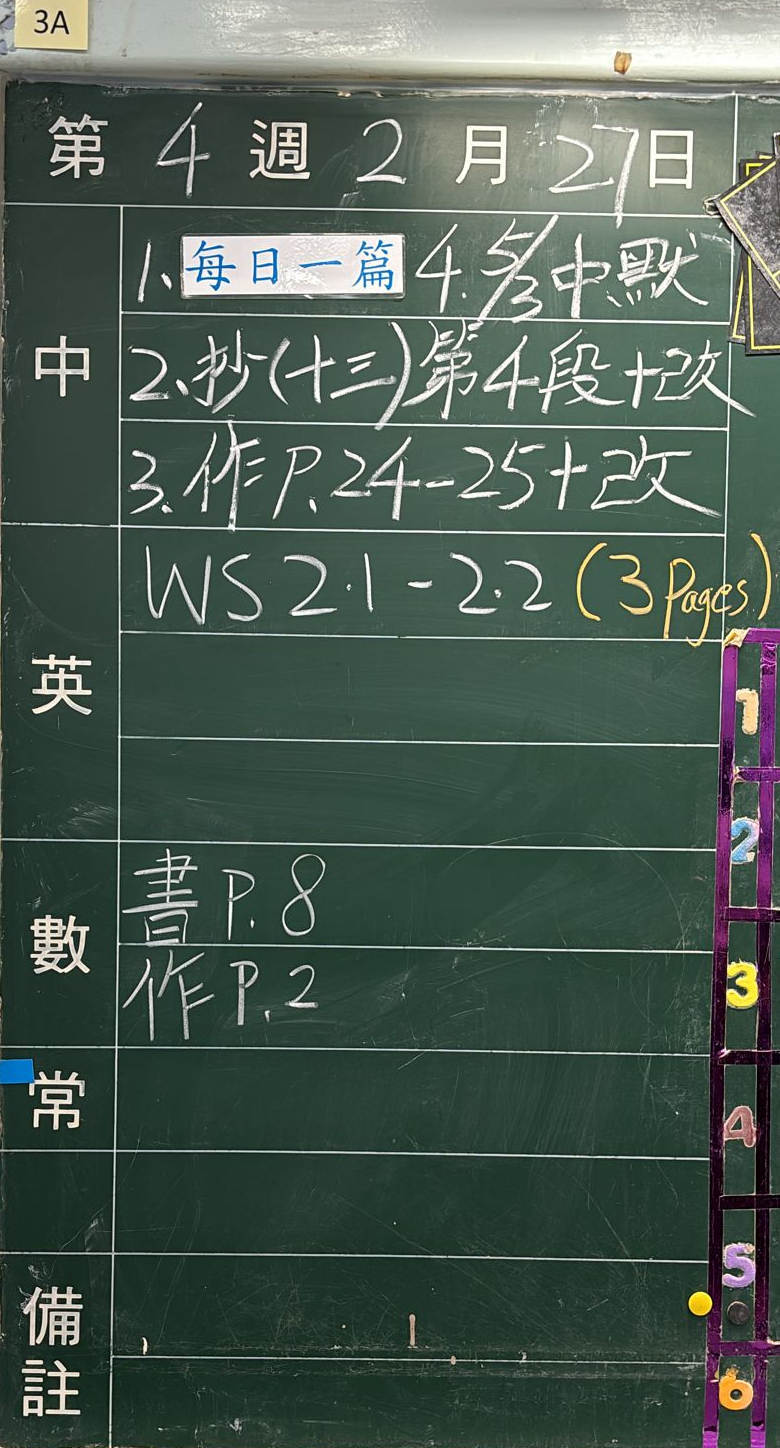 3A
第 4 週 2 月 27 日
中
1、每日一篇 4. 5/3 中默
2、抄(十三)第4段+改
3、作P.24-25+改
英
WS 2.1-2.2 (3 Pages)
數
書 P.8
作 P.2
常
備註
1
2
3
4
5
6